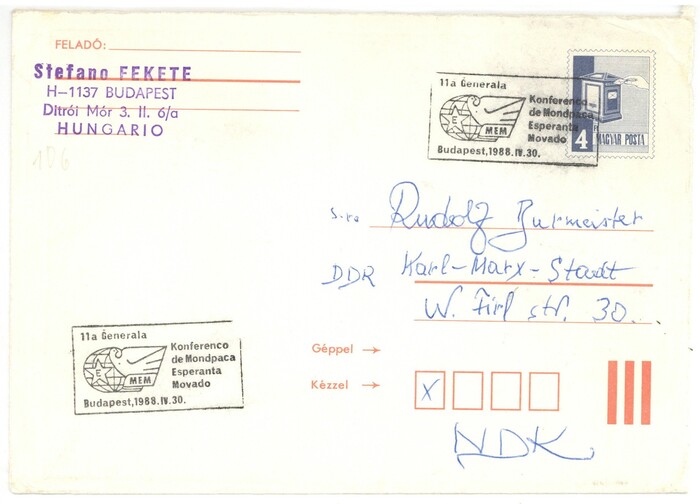 FELADÓ:
Stefano FEKETE
H-1137 BUDAPEST
Ditrói Mór 3. II. 6/a
HUNGARIO
186
11a Generala
Konferenco
de Mondpaca
Esperanta
Movado
E
MEM
Budapest, 1988.IV.30.
4 Ft
MAGYAR POSTA
S-ro Rudolf Burmeister
DDR Karl-Marx-Stadt
W. Firl str. 30.
11a Generala
Konferenco
de Mondpaca
Esperanta
Movado
E
MEM
Budapest, 1988.IV.30.
Géppel →
Kézzel → x
NDK